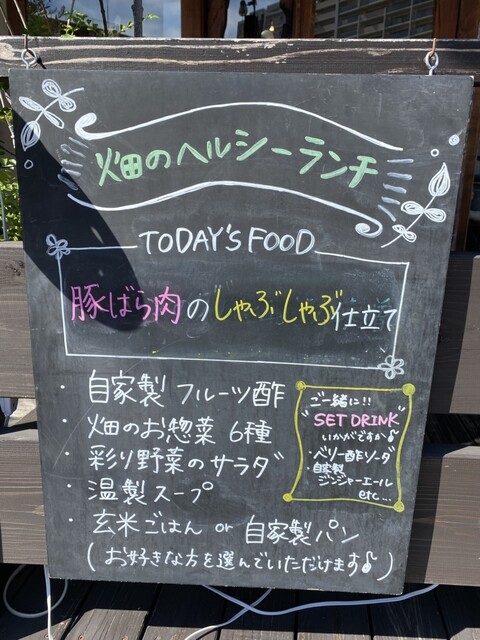 畑のヘルシーランチ
TODAY'S FOOD
豚ばら肉のしゃぶしゃぶ仕立て
・自家製 フルーツ酢
・畑のお惣菜 6種
・彩り野菜のサラダ
・温製スープ
・玄米ごはん or 自家製パン
(お好きな方を選んでいただけます♪)
ご一緒に!!
"SET DRINK"
いかがですか♪
・ベリー酢ソーダ
・自家製
ジンジャーエール
etc...